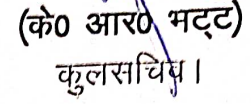 (के0 आर0 भट्ट)
कुलसचिव।